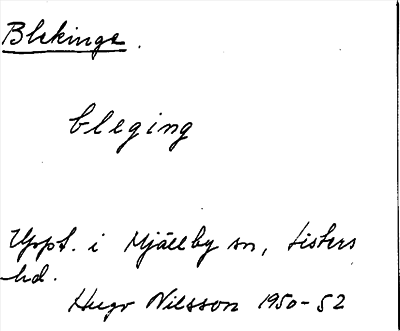 Blekinge.
bleging
Uppt. i Mjällby sn, Listers
hd.
Hugo Nilsson 1950-52